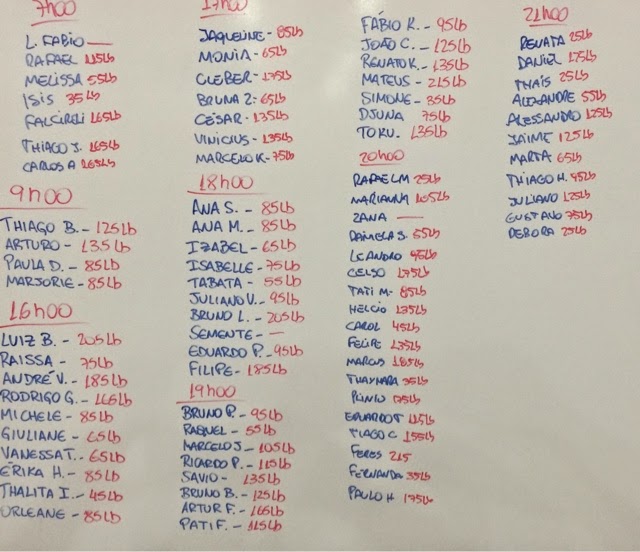 7h00
L. FABIO —
RAFAEL 115Lb
MELISSA 55Lb
ISIS 35Lb
FALCIROLI 165Lb
THIAGO J. 165Lb
CARLOS A 165Lb
9h00
THIAGO B. - 125Lb
ARTURO - 135Lb
PAULA D. - 85Lb
MARJORIE - 85Lb
16h00
LUIZ B. - 205Lb
RAISSA - 75Lb
ANDRÉ V. - 185Lb
RODRIGO G. - 165Lb
MICHELE - 85Lb
GIULIANE - 65Lb
VANESSA T. - 65Lb
ÉRIKA H. - 85Lb
THALITA I. - 45Lb
ORLEANE - 85Lb
17h00
JAQUELINE - 85Lb
MONIA - 65Lb
CLEBER - 175Lb
BRUNA Z - 65Lb
CÉSAR - 135Lb
VINICIUS - 135Lb
MARCELO K - 75Lb
18h00
ANA S. - 85Lb
ANA M. - 85Lb
IZABEL - 65Lb
ISABELLE - 75Lb
TABATA - 55Lb
JULIANO V. - 95Lb
BRUNO L. - 205Lb
SEMENTE - —
EDUARDO P. - 95Lb
FILIPE - 185Lb
19h00
BRUNO P. - 95Lb
RAQUEL - 55Lb
MARCELO J - 105Lb
RICARDO P. - 115Lb
SAVIO - 135Lb
BRUNO B. - 125Lb
ARTUR F. - 165Lb
PATI F. - 115Lb
FÁBIO K. - 95Lb
JOÃO C. - 125Lb
RENATO K. - 135Lb
MATEUS - 215Lb
SIMONE - 85Lb
DJUNA 75Lb
TOKU. 135Lb
20h00
RAFAEL M 25Lb
MARIANNA 105Lb
ZANA —
DANIELA S. 55Lb
LEANDRO 95Lb
CELSO 175Lb
TATI M - 85Lb
HELCIO 135Lb
CAROL 45Lb
FELIPE 135Lb
MARCUS 185Lb
THAYNARA 35Lb
PLÍNIO 175Lb
EDUARDO T 115Lb
TIAGO C 155Lb
FERES 215
FERNANDA 35Lb
PAULO H 175Lb
21h00
RENATA 25Lb
DANIEL 125Lb
THAIS 25Lb
ALEXANDRE 55Lb
ALESSANDRO 125Lb
JAIME 125Lb
MARTA 65Lb
THIAGO H. 95Lb
JULIANO 125Lb
GUSTAVO 75Lb
DEBORA 25Lb